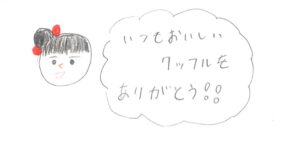 いつもおいしい
ワッフルを
ありがとう!!